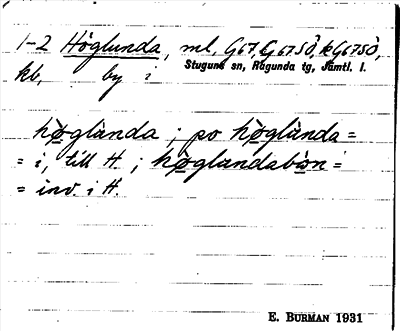 1-2 Höglunda, ml, G67, G67SÖ, kG67SÖ,
Stuguns sn, Ragunda tg, Jämtl. l.
kb, by i
hö̀glùnda ; po hö̀glùnda =
= i, till H. ; hö̀glundabön =
= inv. i H.
E. BURMAN 1931